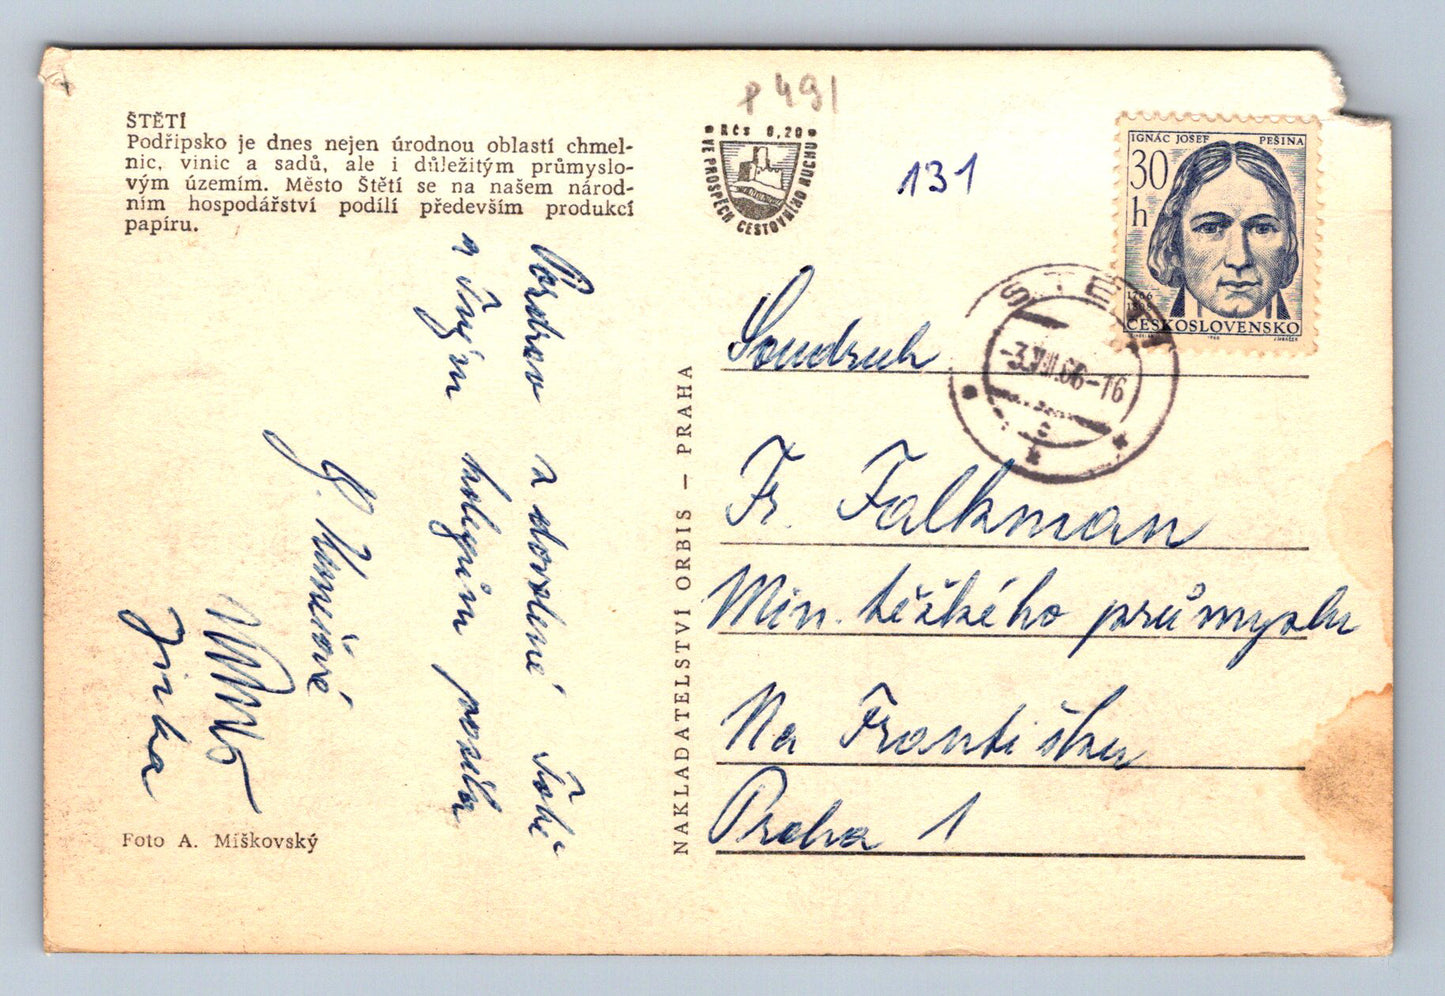 ŠTĚTÍ
Podřipsko je dnes nejen úrodnou oblastí chmel-
nic, vinic a sadů, ale i důležitým průmyslo-
vým územím. Město Štětí se na našem národ-
ním hospodářství podílí především produkcí
papíru.
p 491
Kčs 0,20
VE PROSPĚCH CESTOVNÍHO RUCHU
131
IGNÁC JOSEF PEŠINA
30
h
1766
ČESKOSLOVENSKO
ŠTĚ
-3.VIII.66-16
Pozdrav z dovolené Tobě
a Tvým kolegům posílá
Jirka
Soudruh
Fr. Falkman
Min. těžkého průmyslu
Na Františku
Praha 1
NAKLADATELSTVÍ ORBIS – PRAHA
Foto A. Míškovský